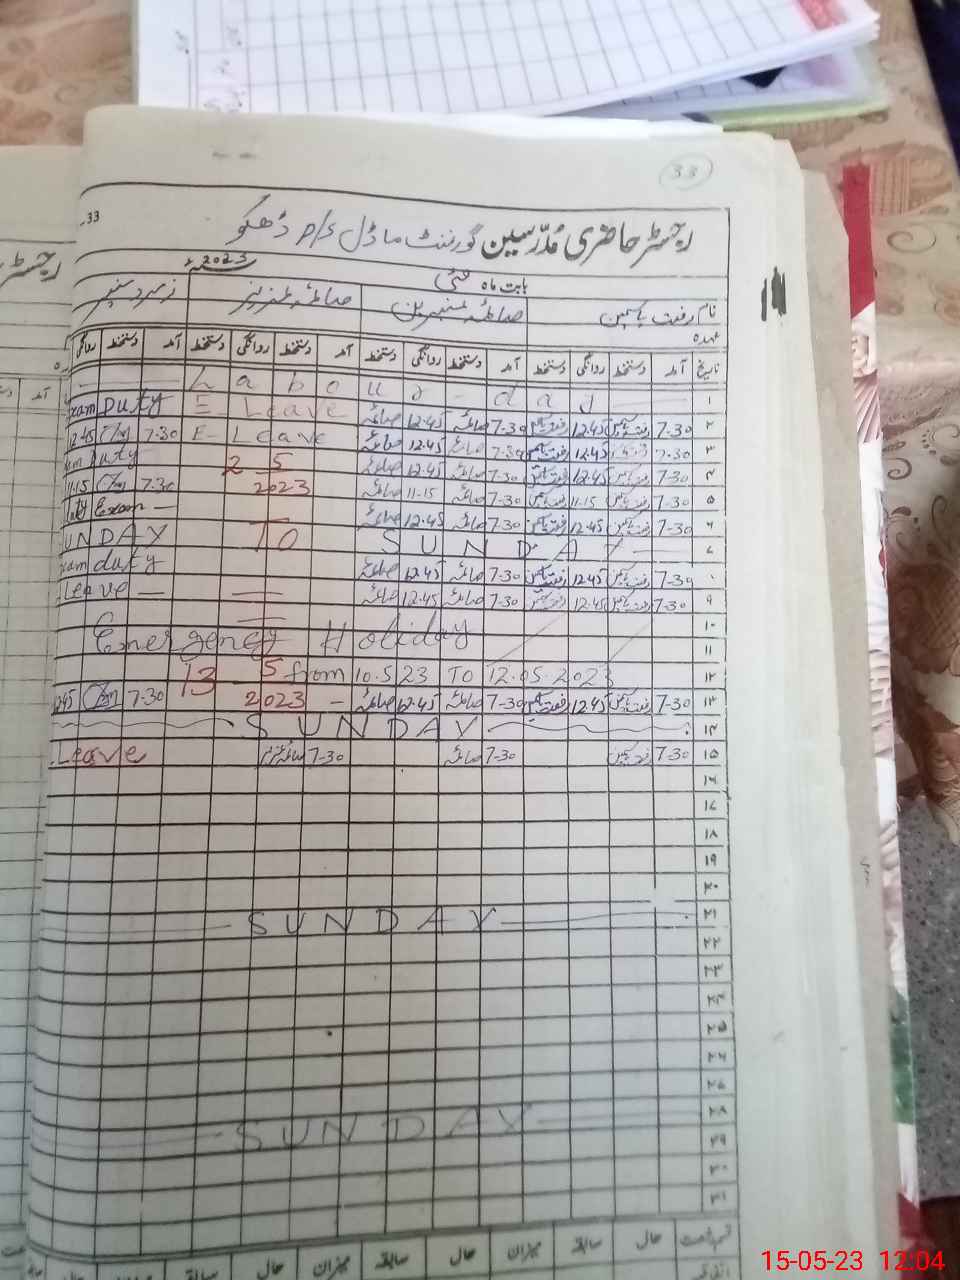 33
33
رجسٹر حاضری مُدرّسین گورنمنٹ ماڈل P/S ڈھکو
بابت ماہ مئی 2023ء
نام رفعت یاسمین صائمہ عنبرین صائمہ عزیز
عہدہ
تاریخ آمد دستخط روانگی دستخط آمد دستخط روانگی دستخط آمد دستخط روانگی دستخط آمد دستخط روانگی
۱ Labour day
۲ 7-30 رفعت یاسمین 12.45 رفعت یاسمین 7-30 صائمہ 12.45 صائمہ E-Leave Exam Duty
۳ 7-30 رفعت یاسمین 12.45 رفعت یاسمین 7-30 صائمہ 12.45 صائمہ E-Leave 7-30 12.45
۴ 7-30 رفعت یاسمین 12.45 رفعت یاسمین 7-30 صائمہ 12.45 صائمہ 2 5 Duty
۵ 7-30 رفعت یاسمین 11-15 رفعت یاسمین 7-30 صائمہ 11-15 صائمہ 2023 7-30 11-15
۶ 7-30 رفعت یاسمین 12.45 رفعت یاسمین 7-30 صائمہ 12.45 صائمہ Exam
۷ SUNDAY TO SUNDAY
۸ 7-30 رفعت یاسمین 12.45 رفعت یاسمین 7-30 صائمہ 12.45 صائمہ Exam duty
۹ 7-30 رفعت یاسمین 12.45 رفعت یاسمین 7-30 صائمہ 12.45 صائمہ Leave
۱۰
۱۱ Emergency Holiday
۱۲ from 10.5.23 TO 12.05.2023 13 5
۱۳ 7-30 رفعت یاسمین 12.45 رفعت یاسمین 7-30 صائمہ 12.45 صائمہ 2023 7-30 12.45
۱۴ SUNDAY
۱۵ 7-30 رفعت یاسمین 7-30 صائمہ 7-30 صائمہ عزیز Leave
۱۶
۱۷
۱۸
۱۹
۲۰
۲۱ SUNDAY
۲۲
۲۳
۲۴
۲۵
۲۶
۲۷
۲۸ SUNDAY
۲۹
۳۰
۳۱
قسم رخصت حال سابقہ میزان حال سابقہ میزان حال سابقہ میزان
اتفاقیہ
15-05-23 12:04